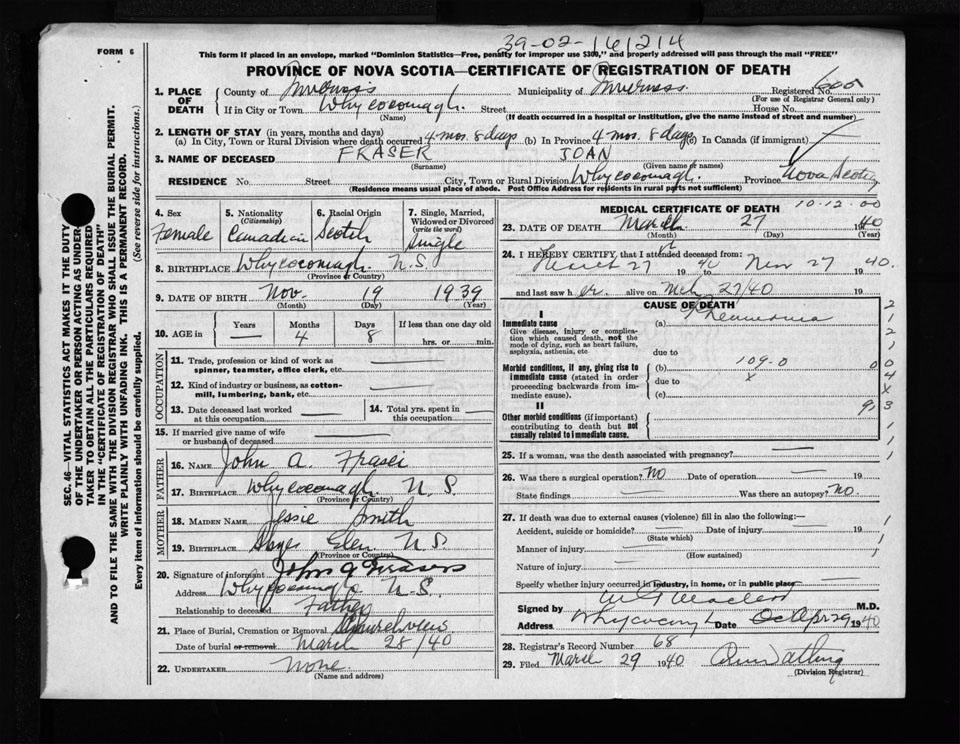 39-02-161214
FORM 6
This form if placed in an envelope, marked "Dominion Statistics—Free, penalty for improper use $300," and properly addressed will pass through the mail "FREE"
PROVINCE OF NOVA SCOTIA—CERTIFICATE OF REGISTRATION OF DEATH
1. PLACE OF DEATH County of Inverness Municipality of Inverness Registered No.
(For use of Registrar General only)
If in City or Town Whycocomagh. Street House No.
(Name) (If death occurred in a hospital or institution, give the name instead of street and number)
2. LENGTH OF STAY (in years, months and days)
(a) In City, Town or Rural Division where death occurred 4 mos. 8 days (b) In Province 4 mos. 8 days (c) In Canada (if immigrant)
3. NAME OF DECEASED FRASER JOAN
(Surname) (Given name or names)
RESIDENCE No. Street City, Town or Rural Division Whycocomagh. Province Nova Scotia
(Residence means usual place of abode. Post Office Address for residents in rural parts not sufficient)
4. Sex Female
5. Nationality (Citizenship) Canadian
6. Racial Origin Scotch
7. Single, Married, Widowed or Divorced (write the word) Single
8. BIRTHPLACE Whycocomagh N.S.
(Province or Country)
9. DATE OF BIRTH Nov. 19 1939
(Month) (Day) (Year)
10. AGE in Years — Months 4 Days 8 If less than one day old hrs. or min.
OCCUPATION
11. Trade, profession or kind of work as spinner, teamster, office clerk, etc. —
12. Kind of industry or business, as cotton-mill, lumbering, bank, etc. —
13. Date deceased last worked at this occupation —
14. Total yrs. spent in this occupation —
15. If married give name of wife or husband of deceased —
FATHER
16. NAME John A. Fraser
17. BIRTHPLACE Whycocomagh N.S.
(Province or Country)
MOTHER
18. MAIDEN NAME Jessie Smith
19. BIRTHPLACE Glen N.S.
(Province or Country)
20. Signature of informant John A Fraser
Address Whycocomagh N.S.
Relationship to deceased Father
21. Place of Burial, Cremation or Removal
Date of burial or removal March 28/40
22. UNDERTAKER None
(Name and address)
MEDICAL CERTIFICATE OF DEATH 10-12.00
23. DATE OF DEATH March 27 1940
(Month) (Day) (Year)
24. I HEREBY CERTIFY, that I attended deceased from:
27 1940 to 27 1940.
and last saw her alive on Mch 27/40 19
CAUSE OF DEATH
I
Immediate cause
Give disease, injury or complication which caused death, not the mode of dying, such as heart failure, asphyxia, asthenia, etc.
(a) Pneumonia
due to
Morbid conditions, if any, giving rise to immediate cause (stated in order proceeding backwards from immediate cause).
(b) 109-0
due to x
(c)
II
Other morbid conditions (if important) contributing to death but not causally related to immediate cause.
25. If a woman, was the death associated with pregnancy?
26. Was there a surgical operation? No Date of operation — 19
State findings — Was there an autopsy? No.
27. If death was due to external causes (violence) fill in also the following:—
Accident, suicide or homicide? — Date of injury — 19
(State which)
Manner of injury —
(How sustained)
Nature of injury —
Specify whether injury occurred in industry, in home, or in public place —
Signed by M.D.
Address Date 1940
28. Registrar's Record Number 68
29. Filed March 29 1940
(Division Registrar)
SEC. 46—VITAL STATISTICS ACT MAKES IT THE DUTY
OF THE UNDERTAKER OR PERSON ACTING AS UNDERTAKER
TO OBTAIN ALL THE PARTICULARS REQUIRED
IN THE "CERTIFICATE OF REGISTRATION OF DEATH"
AND TO FILE THE SAME WITH THE DIVISION REGISTRAR WHO SHALL ISSUE THE BURIAL PERMIT.
WRITE PLAINLY WITH UNFADING INK. THIS IS A PERMANENT RECORD.
Every item of information should be carefully supplied. (See reverse side for instructions.)